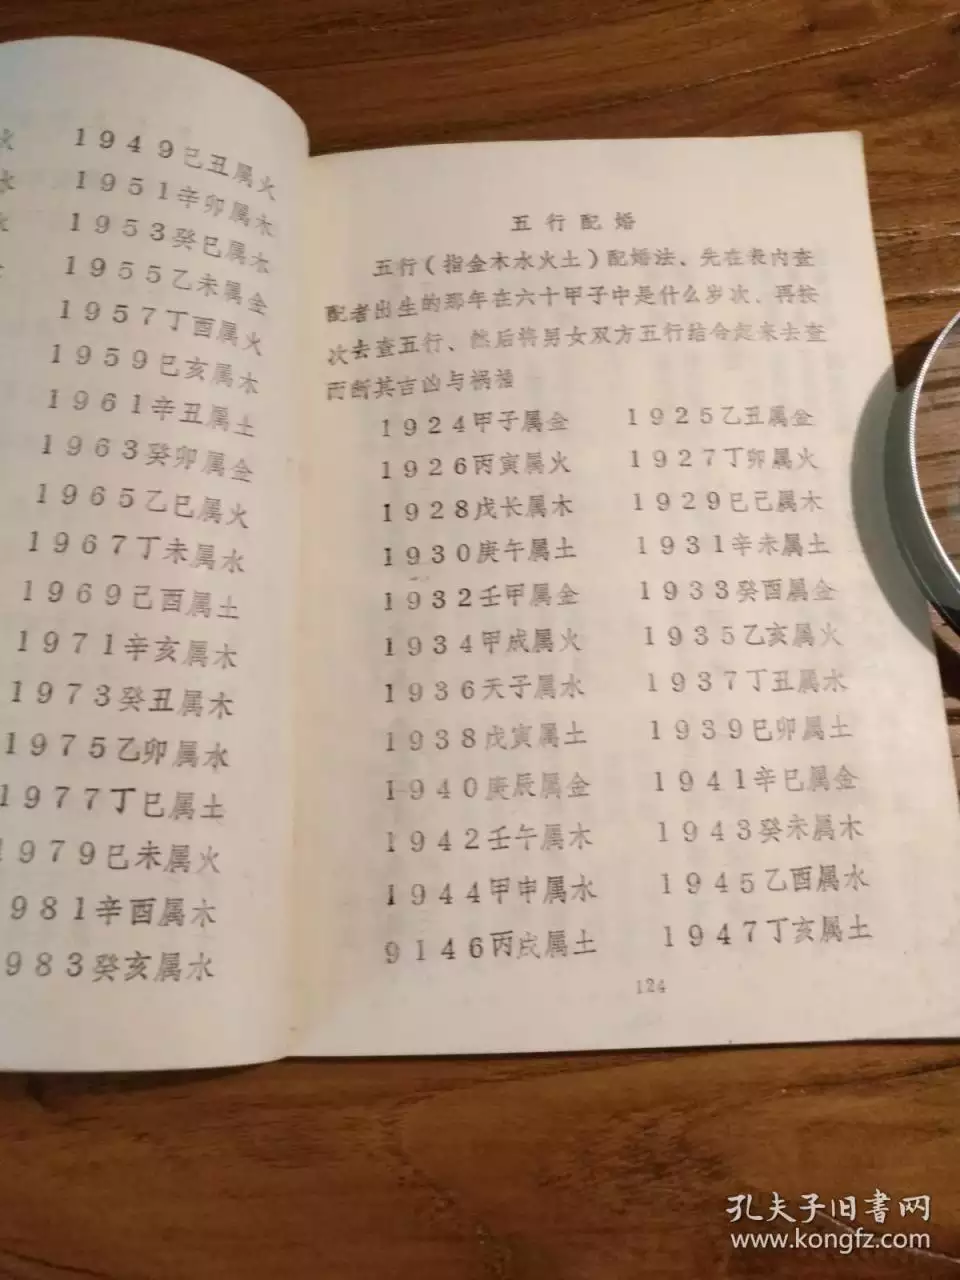 火
1949己丑属火
水
1951辛卯属木
水
1953癸巳属木
1955乙未属金
1957丁酉属火
1959已亥属木
1961辛丑属土
1963癸卯属金
1965乙巳属火
1967丁未属水
1969己酉属土
1971辛亥属木
1973癸丑属木
1975乙卯属水
1977丁巳属土
1979已未属火
981辛酉属木
983癸亥属水
五行配婚
五行(指金木水火土)配婚法、先在表内查
配者出生的那年在六十甲子中是什么岁次、再按
次去查五行、然后将男女双方五行结合起来去查
而断其吉凶与祸福
1924甲子属金 1925乙丑属金
1926丙寅属火 1927丁卯属火
1928戊长属木 1929巳己属木
1930庚午属土 1931辛未属土
1932壬甲属金 1933癸酉属金
1934甲成属火 1935乙亥属火
1936天子属水 1937丁丑属水
1938戊寅属土 1939巳卯属土
1940庚辰属金 1941辛巳属金
1942壬午属木 1943癸未属木
1944甲申属水 1945乙酉属水
9146丙戌属土 1947丁亥属土
124
孔夫子旧书网
www.kongfz.com